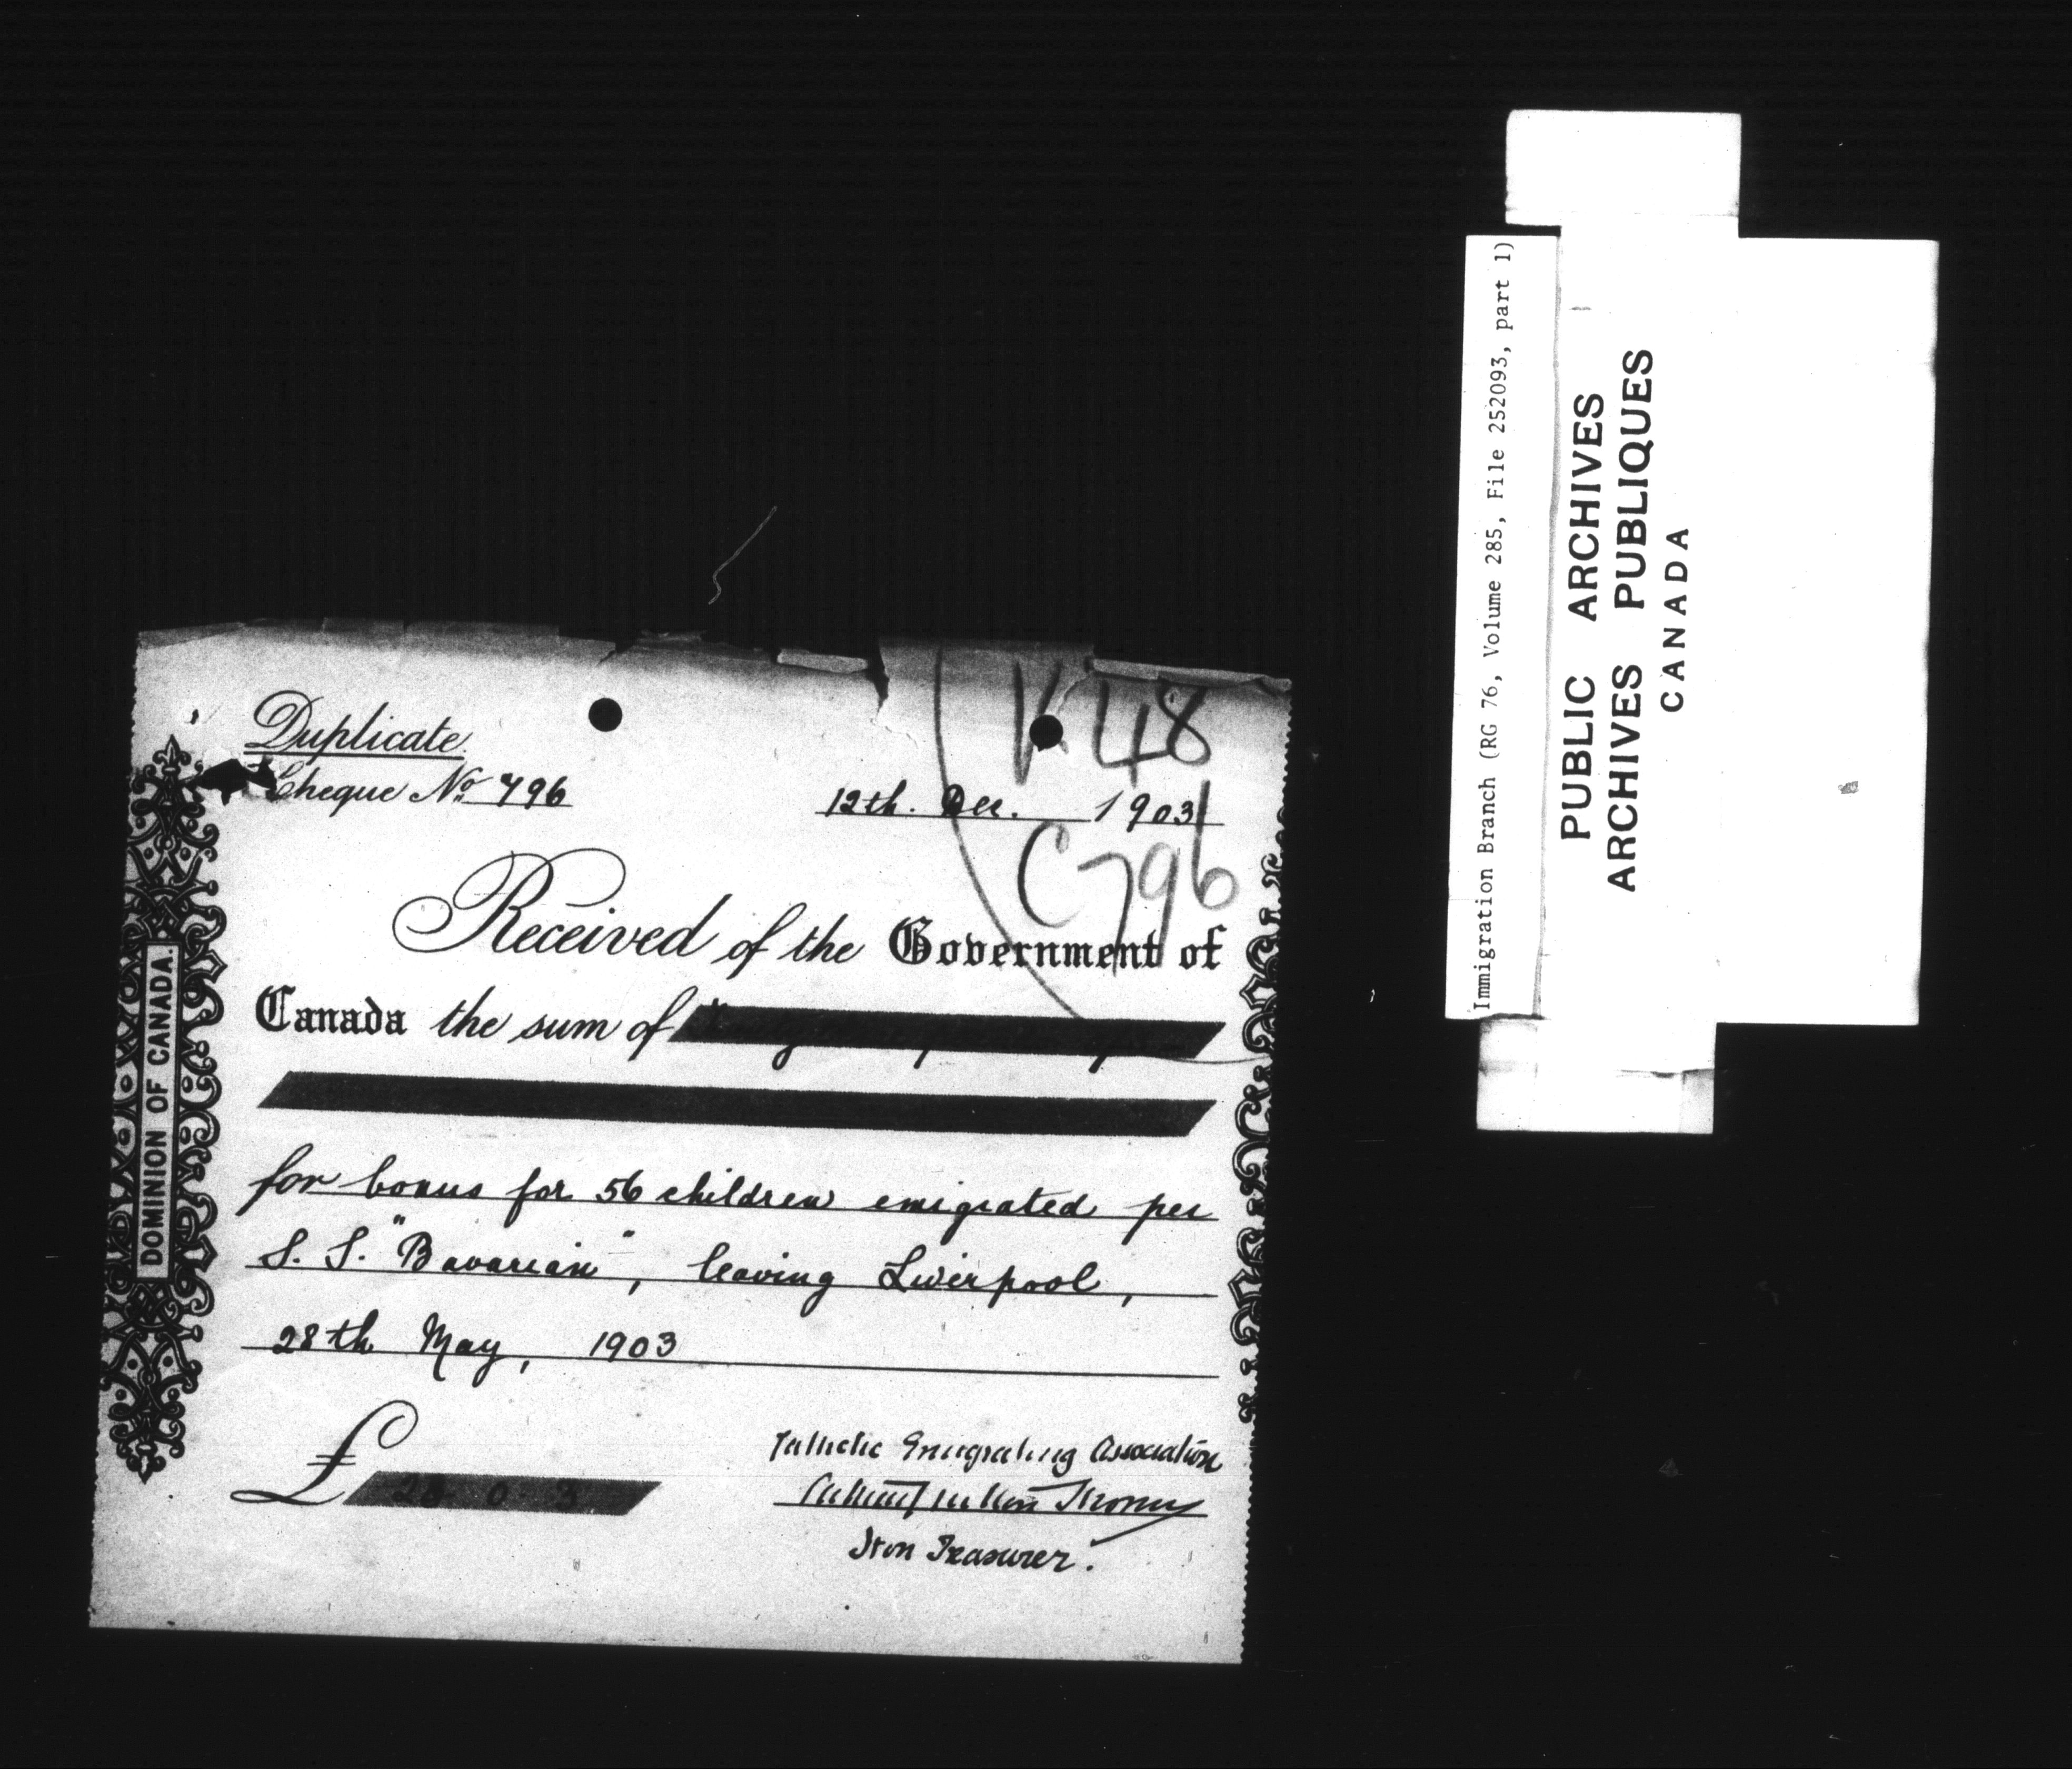 Duplicate.
Cheque No. 796
V. 48
12th. Dec. 1903
C 796
Received of the Government of
Canada the sum of
for bonus for 56 children emigrated per
S. S. "Bavarian", leaving Liverpool,
28th May, 1903
£ 28 - 0 - 3
Catholic Emigrating Association
Hon Treasurer.
DOMINION OF CANADA.
Immigration Branch (RG 76, Volume 285, File 252093, part 1)
PUBLIC ARCHIVES
ARCHIVES PUBLIQUES
CANADA